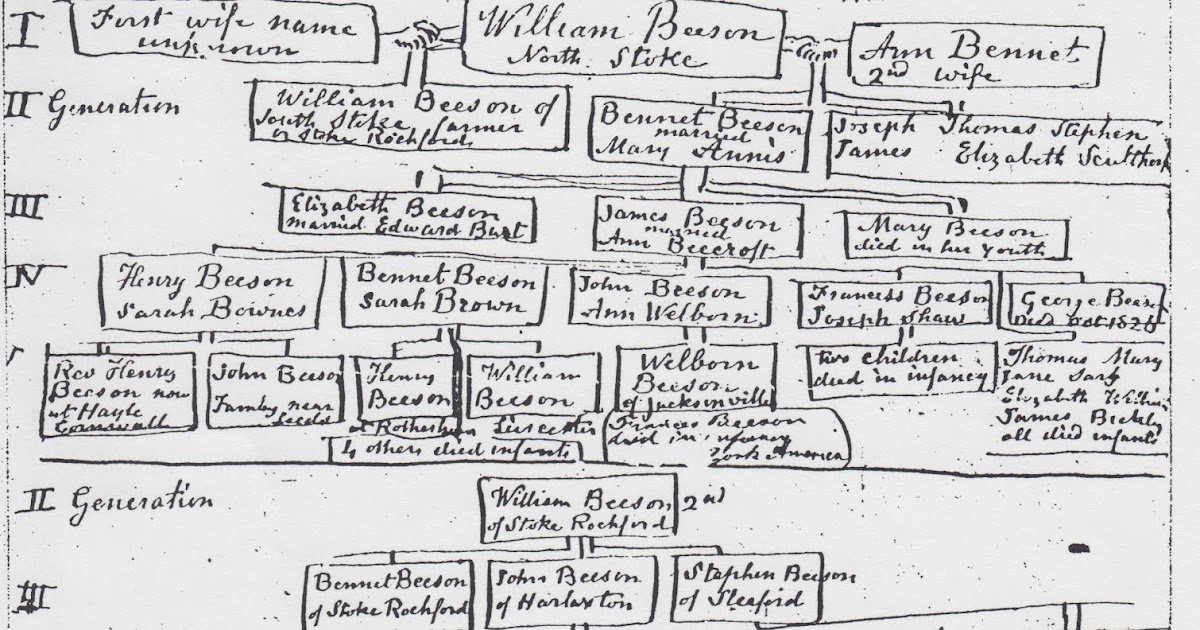 I
First wife name
unknown
William Beeson
North Stoke
Ann Bennet
2nd wife
II Generation
William Beeson of
South Stoke farmer
or Stoke Rochford
Bennet Beeson
married
Mary Annis
Joseph Thomas Stephen
James Elizabeth Sculthorp
III
Elizabeth Beeson
married Edward Burt
James Beeson
married
Ann Beecroft
Mary Beeson
died in her youth
IV
Henry Beeson
Sarah Bownes
Bennet Beeson
Sarah Brown
John Beeson
Ann Welborn
Francess Beeson
Joseph Shaw
George Beeson
Died Oct 1828
V
Rev Henry
Beeson now
at Hayle
Cornwall
John Beeson
near
Leeds
Henry
Beeson
at Rotherham
William
Beeson
Leicester
4 others died infants
Welborn
Beeson
of Jacksonville
Frances Beeson
died in infancy
York America
two children
died in infancy
Thomas Mary
Jane
Elizabeth
James
all died infants
II Generation
William Beeson 2nd
of Stoke Rochford
III
Bennet Beeson
of Stoke Rochford
John Beeson
of Harlaxton
Stephen Beeson
of Sleaford